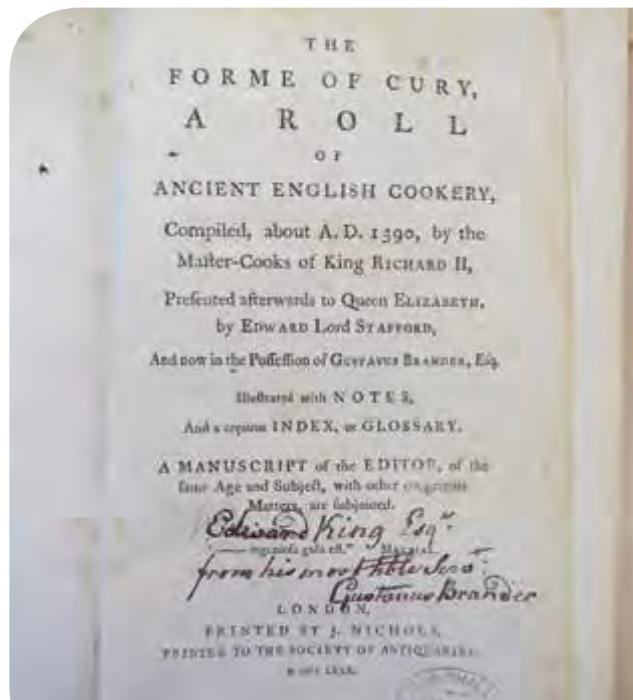 THE
FORME OF CURY,
A ROLL
OF
ANCIENT ENGLISH COOKERY,
Compiled, about A.D. 1390, by the
Master-Cooks of King RICHARD II,
Presented afterwards to Queen ELIZABETH,
by EDWARD Lord STAFFORD,
And now in the Possession of GUSTAVUS BRANDER, Esq.
Illustrated with NOTES,
And a copious INDEX, or GLOSSARY.
A MANUSCRIPT of the EDITOR, of the
same Age and Subject, with other congruous
Matters, are subjoined.
Edward King Esqr.
"—— ingeniosa gula est." MARTIAL.
from his most hble Servt.
Gustavus Brander
LONDON,
PRINTED BY J. NICHOLS,
PRINTER TO THE SOCIETY OF ANTIQUARIES.
M DCC LXXX.